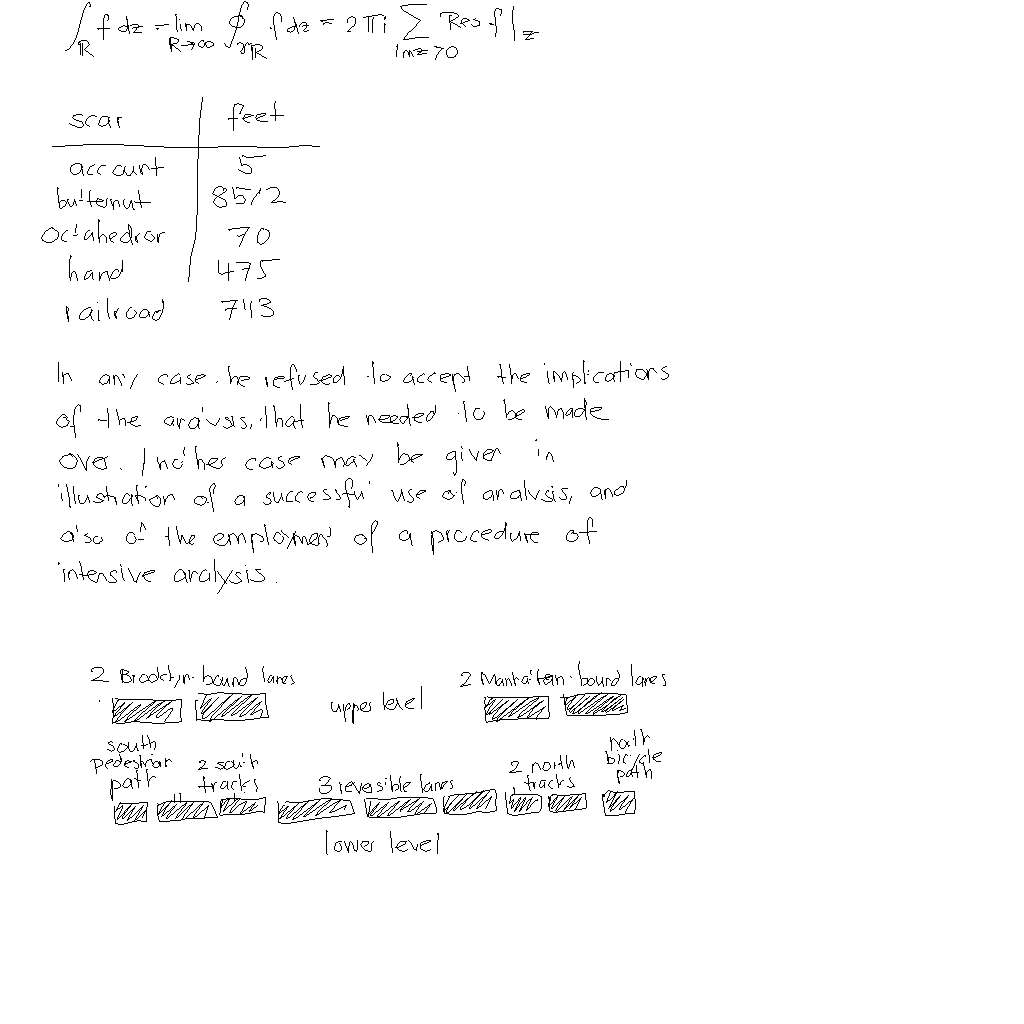 ∫_ℝ f dz = lim_{R→∞} ∮_{γ_R} f dz = 2πi ∑_{Im z > 0} Res f|_z
scar | feet
account | 5
butternut | 85/2
octahedron | 70
hand | 475
railroad | 743
In any case, he refused to accept the implications
of the analysis, that he needed to be made
over. Another case may be given in
illustration of a successful use of analysis, and
also of the employment of a procedure of
intensive analysis.
2 Brooklyn-bound lanes 2 Manhattan-bound lanes
upper level
south pedestrian path
2 south tracks
3 reversible lanes
2 north tracks
north bicycle path
lower level